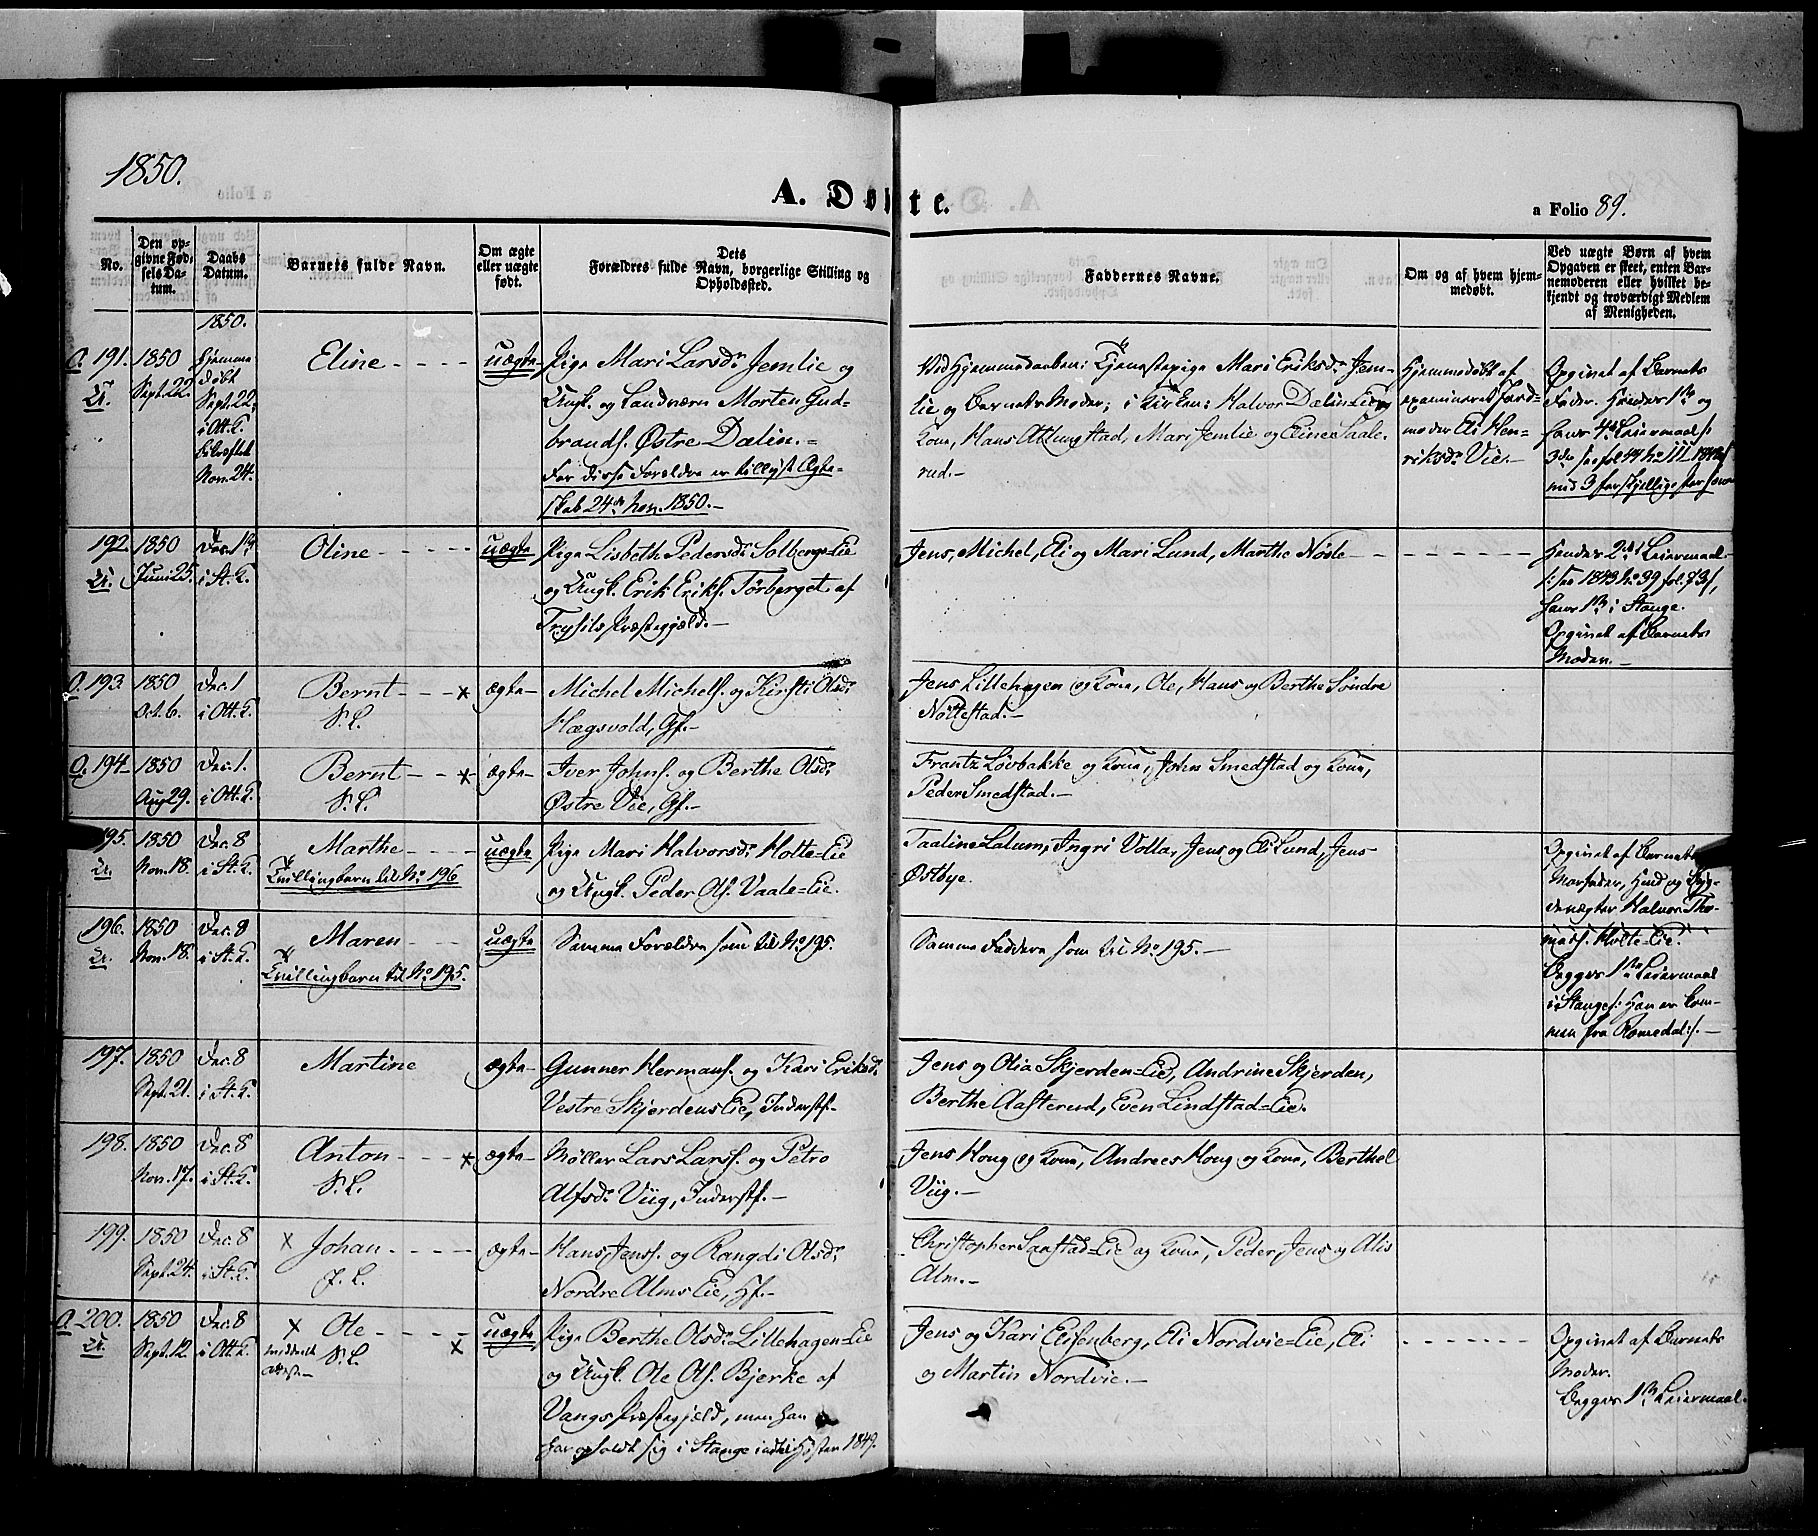 1850.
A. Døbte.
a Folio 89.
No.
Den op-
givne Fød-
sels Da-
tum.
Daabs
Datum.
Barnets fulde Navn.
Om ægte
eller uægte
født.
Dets
Forældres fulde Navn, borgerlige Stilling og
Opholdssted.
Faddernes Navne.
Om og af hvem hjem-
medøbt.
Ved uægte Børn af hvem
Opgaven er skeet, enten Bar-
nemoderen eller hvilket be-
kjendt og troværdigt Medlem
af Menigheden.
1850.
O. 191.
U.
1850
Sept. 22.
Hjemme
døbt
Sept. 22.
i Ott. K.
Nov. 24.
Eline
uægte
Pige Mari Larsd. Jemlie og
Ungk. og Landværn Morten Gud-
brands. Østre Dælin.
For disse Forældre er tillyst Ægte-
skab 24de Nov. 1850.
Ved Hjemmedaaben: Tjenestepige Mari Eriksd. Jem-
lie og Barnets Moder; i Kirken: Halvor Dælin Eie og
Kone, Hans Atlungstad, Mari Jemlie og Eline Saale-
rud.
Hjemmedøbt af
examineret Jord-
moder Eli Hen-
riksd. Vie.
Opgivet af Barnets
Fader. Hendes 1te og
hans 4de Leiermaal
med 3 forskjellige
192.
U.
1850
Juni 25.
Dec. 1te
i St. K.
Oline
uægte
Pige Lisbeth Pedersd. Solbergs Eie
og Ungk. Erik Eriks. Törberget af
Trysils Præstegjeld.
Jens, Michel, Eli og Mari Lund, Marthe Nösle
Hendes 2det Leiermaal
/: see 1843 No 39 fol. 83/,
hans 1te i Stange.
Opgivet af Barnets
Moder.
O. 193.
1850
Oct. 6.
Dec. 1
i Ott. K.
Bernt
S. L.
ægte
Michel Michels. og Kirsti Olsd.
Hægsvold, Gf.
Jens Lillehagen og Kone, Ole, Hans og Berthe Söndre
Nöttestad.
O. 194
1850
Aug. 29.
Dec. 1.
i Ott. K.
Bernt
S. L.
ægte
Iver Johns. og Berthe Olsd.
Østre Vie, Gf.
Frantz Lövbakke og Kone, Johen Smedstad og Kone,
Peder Smedstad.
195.
U.
1850
Nov. 18.
Dec. 8
i St. K.
Marthe
Tvillingbarn til No 196
uægte
Pige Mari Halvorsd. Holte-Eie
og Ungk. Peder Ols. Vaale-Eie.
Taaline Latum, Ingri Volla, Jens og Eli Lund, Jens
Østbye.
Opgivet af Barnets
Morfader,
Halvor Tho-
mass. Holte-Eie.
Begges 1te Leiermaal
i Stange /: Han er kom-
men fra Romedal :/.
196.
U.
1850
Nov. 18.
Dec. 8
i St. K.
Maren
Tvillingbarn til No 195.
uægte
Samme Forældre som til No 195.
Samme Faddere som til No 195.
197.
1850
Sept. 21.
Dec. 8
i St. K.
Martine
ægte
Gunner Hermans. og Kari Eriksd.
Vestre Skjerdens Eie, Inderstf.
Jens og Olia Skjerden-Eie, Andrine Skjerden,
Berthe Aasterud, Even Lindstad-Eie.
198.
1850
Nov. 17.
Dec. 8
i St. K.
Anton
S. L.
ægte
Møller Lars Larss. og Petro
Alfsd. Viig, Inderstf.
Jens Houg og Kone, Andrees Houg og Kone, Berthel
Viig.
199.
1850
Sept. 24.
Dec. 8
i St. K.
Johan
J. L.
ægte
Hans Jens. og Rangdi Olsd.
Nordre Alms Eie, Hf.
Christopher Saxstad-Eie og Kone, Peder, Jens og Alis
Alm.
O. 200.
U.
1850
Sept. 12.
Dec. 8
i Ott. K.
Ole
S. L.
meddelt
attest
uægte
Pige Berthe Olsd. Lillehagen-Eie
og Ungk. Ole Ols. Bjerke af
Vangs Præstegjeld, men han
har opholdt sig i Stange indtil Høsten 1849.
Jens og Kari Elisenberg, Eli Nordvie-Eie, Eli
og Martin Nordvie.
Opgivet af Barnets
Moder.
Begges 1te Leiermaal.